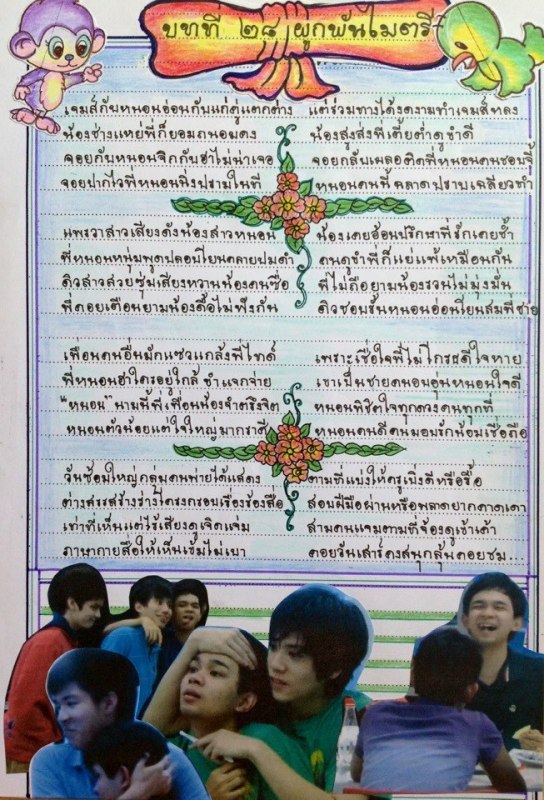 บทที่ ๒๘ ผูกพันไมตรี
เจมส์กับหนอนอ่อนกับแก่คู่แตกต่าง แต่ร่วมทางได้งดงามทำเจมส์หลง
น้องช่างแหย่พี่ก็ยอมถนอมคง น้องสูงส่งพี่เตี้ยต่ำดูขำดี
จอยกับหนอนจิกกับฮาไม่น่าเจอ จอยกลับเผลอติดพี่หนอนคนชอบจี้
จอยปากไวพี่หนอนนิ่งปรามในที หนอนคนนี้ฉลาดปราบเฉลียวทำ
แพรวาสาวเสียงดังน้องสาวหนอน น้องเคยอ้อนปรึกษาพี่รักเคยช้ำ
พี่หนอนหนุ่มพูดปลอบโยนคลายปมดำ คนดูขำพี่ก็แย่แพ้เหมือนกัน
ดิวสาวสวยซุ่มเสียงหวานน้องคนซื่อ พี่ไม่ถือยามน้องรวนไม่มุ่งมั่น
พี่คอยเตือนยามน้องดื้อไม่ฟังกัน ดิวชอบชั้นหนอนอ่อนโยนสมพี่ชาย
เพื่อนคนอื่นมักแซวแกล้งพี่ไทด์ เพราะเชื่อใจพี่ไม่โกรธดีใจหาย
พี่หนอนฮาใครอยู่ใกล้ขำแจกจ่าย เขาเป็นชายคนอบอุ่นหนอนใจดี
"หนอน" นามนี้พี่เพื่อนน้องจำตรึงจิต หนอนพิชิตใจทุกดวงคนทุกที่
หนอนตัวน้อยแต่ใจใหญ่มากราศี หนอนคนดีคนมอบรักน้อมเชื่อถือ
วันซ้อมใหญ่กลุ่มคนพายได้แสดง ตามที่แบ่งให้ครูเบิ่งดีหรือรื้อ
ต่างสรรสร้างร่างโครงกรอบเรื่องร้องสื่อ สอบฝีมือผ่านหรือพลาดยากคาดเดา
เท่าที่เห็นแต่ไร้เสียงดูเจิดแจ่ม สามคนแจมตามที่จ้องดูเข้าเค้า
ภาษากายสื่อให้เห็นเข้มไม่เบา คอยวันเสาร์คงสนุกลุ้นคอยชม...